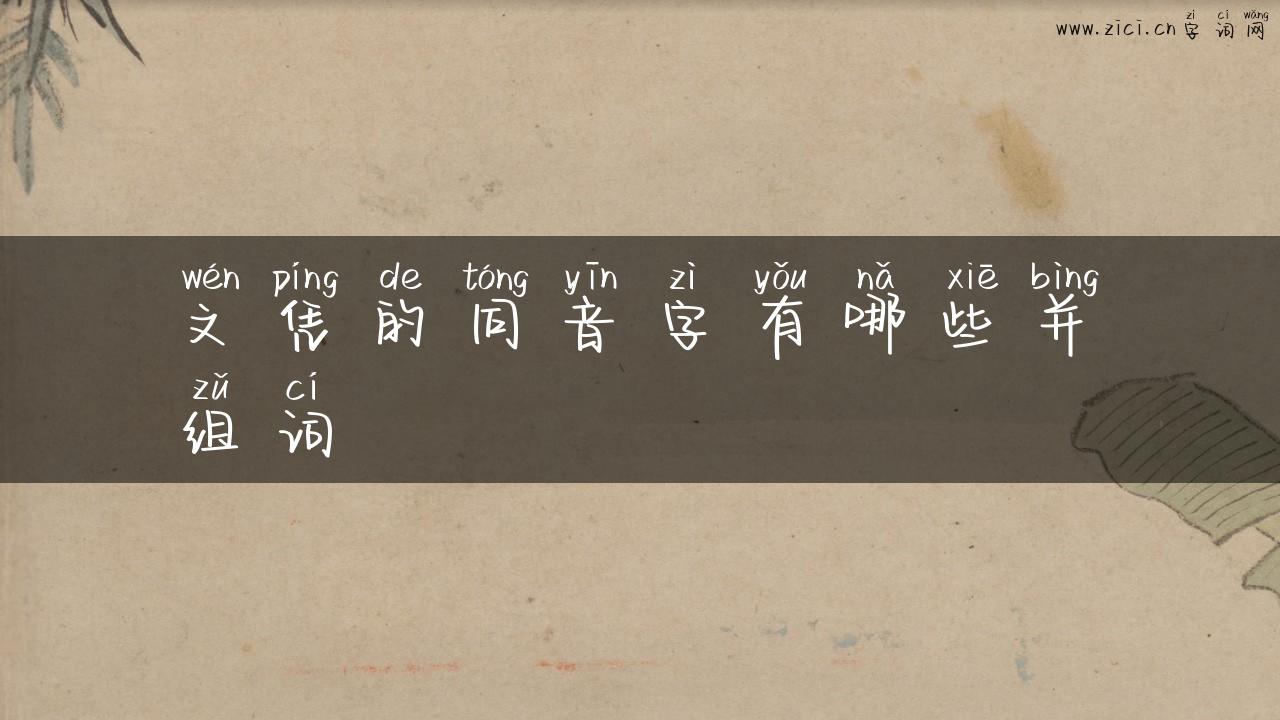 zì cí wǎng
www.zici.cn 字词网
wén píng de tóng yīn zì yǒu nǎ xiē bìng
文凭的同音字有哪些并
zǔ cí
组词